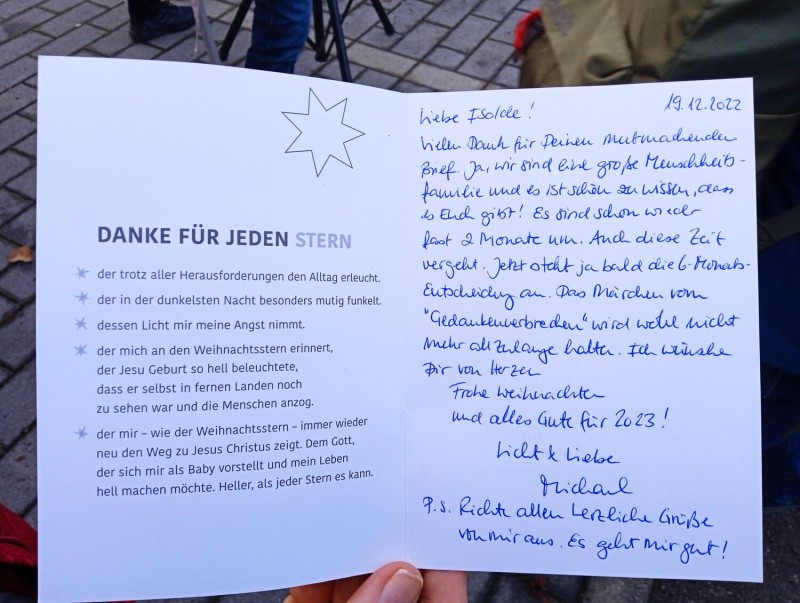 DANKE FÜR JEDEN STERN
der trotz aller Herausforderungen den Alltag erleucht.
der in der dunkelsten Nacht besonders mutig funkelt.
dessen Licht mir meine Angst nimmt.
der mich an den Weihnachtsstern erinnert,
der Jesu Geburt so hell beleuchtete,
dass er selbst in fernen Landen noch
zu sehen war und die Menschen anzog.
der mir – wie der Weihnachtsstern – immer wieder
neu den Weg zu Jesus Christus zeigt. Dem Gott,
der sich mir als Baby vorstellt und mein Leben
hell machen möchte. Heller, als jeder Stern es kann.
19.12.2022
Liebe Isolde!
Vielen Dank für Deinen mutmachenden
Brief. Ja, wir sind eine große Menschheits-
familie und es ist schön zu wissen, dass
es Euch gibt! Es sind schon wieder
fast 2 Monate um. Auch diese Zeit
vergeht. Jetzt steht ja bald die 6-Monats-
Entscheidung an. Das Märchen vom
"Gedankenverbrechen" wird wohl nicht
mehr allzulange halten. Ich wünsche
Dir von Herzen
Frohe Weihnachten
und alles Gute für 2023!
Licht & Liebe
Michael
P.S. Richte allen herzliche Grüße
von mir aus. Es geht mir gut!